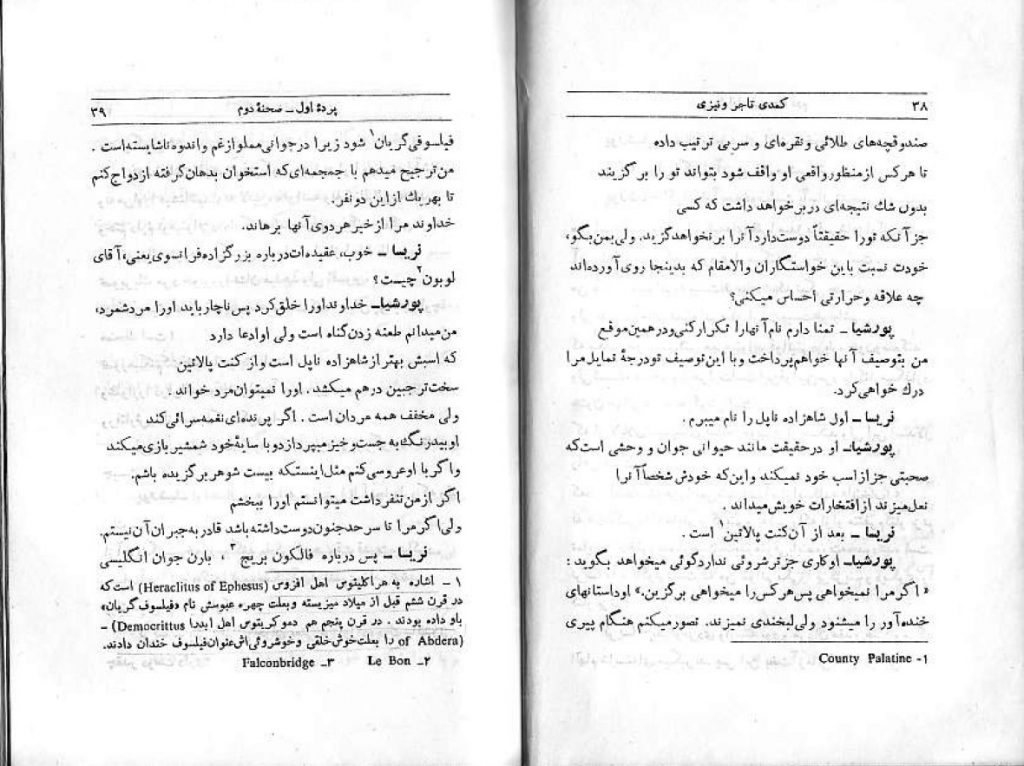 ۳۸
کمدی تاجر ونیزی
صندوقچه‌های طلائی و نقره‌ای و سربی ترتیب داده
تا هر کس از منظور واقعی او واقف شود بتواند تو را بر گزیند
بدون شك نتیجه‌ای در بر خواهد داشت که کسی
جز آنکه تورا حقیقتاً دوست دارد آنرا بر نخواهد گزید. ولی بمن بگو،
خودت نسبت باین خواستگاران والامقام که بدینجا روی آورده‌اند
چه علاقه وحرارتی احساس میکنی؟
پورشیا_ تمنا دارم نام آنهارا تکرار کنی ودرهمین موقع
من بتوصیف آنها خواهم پرداخت و با این توصیف تو درجهٔ تمایل مرا
درك خواهی کرد.
نریسا _ اول شاهزاده ناپل را نام میبرم .
پورشیا_ او درحقیقت مانند حیوانی جوان و وحشی است که
صحبتی جز از اسب خود نمیکند و این که خودش شخصاً آنرا
نعل میزند از افتخارات خویش میداند .
نریسا _ بعد از آن کنت پالاتین۱ است .
پورشیا_ او کاری جز ترشروئی ندارد گوئی میخواهد بگوید :
« اگر مرا نمیخواهی پس هر کس را میخواهی برگزین.» او داستانهای
خنده‌آور را میشنود ولی لبخندی نمیزند. تصور میکنم هنگام پیری
County Palatine -۱
پردهٔ اول _ صحنهٔ دوم
۳۹
فیلسوفی گریان۱ شود زیرا در جوانی مملو از غم و اندوه ناشایسته است .
من ترجیح میدهم با جمجمه‌ای که استخوان بدهان گرفته ازدواج کنم
تا بهریك از این دو نفر.
خداوند مرا از خیر هر دوی آنها برهاند.
نریسا _ خوب، عقیده‌ات درباره بزرگزاده فرانسوی یعنی، آقای
لوبون۲ چیست؟
پورشیا_ خداوند اورا خلق کرد پس ناچار باید اورا مرد شمرد،
من میدانم طعنه زدن گناه است ولی او ادعا دارد
که اسبش بهتر از شاهزاده ناپل است و از کنت پالاتین
سخت‌تر جبین درهم میکشد . اورا نمیتوان مرد خواند .
ولی مخفف همه مردان است . اگر پرنده‌ای نغمه سرائی کند
او بیدرنگ به جست و خیز میپردازد و با سایهٔ خود شمشیر بازی میکند
و اگر با او عروسی کنم مثل اینستکه بیست شوهر برگزیده باشم.
اگر از من تنفر داشت میتوانستم اورا ببخشم
ولی اگر مرا تا سر حد جنون دوست داشته باشد قادر به جبران آن نیستم.
نریسا _ پس درباره فالکون بریج۳ ، بارن جوان انگلیسی
۱ _ اشاره به هراکلیتوس اهل افزوس (Heraclitus of Ephesus) است که
در قرن ششم قبل از میلاد میزیسته و بعلت چهره عبوسش نام «فیلسوف گریان»
باو داده بودند . در قرن پنجم هم دموکریتوس اهل ابدرا (Democrittus _
of Abdera) را بعلت خوش خلقی و خوشروئی اش عنوان فیلسوف خندان دادند.
۲_ Le Bon ۳_ Falconbridge